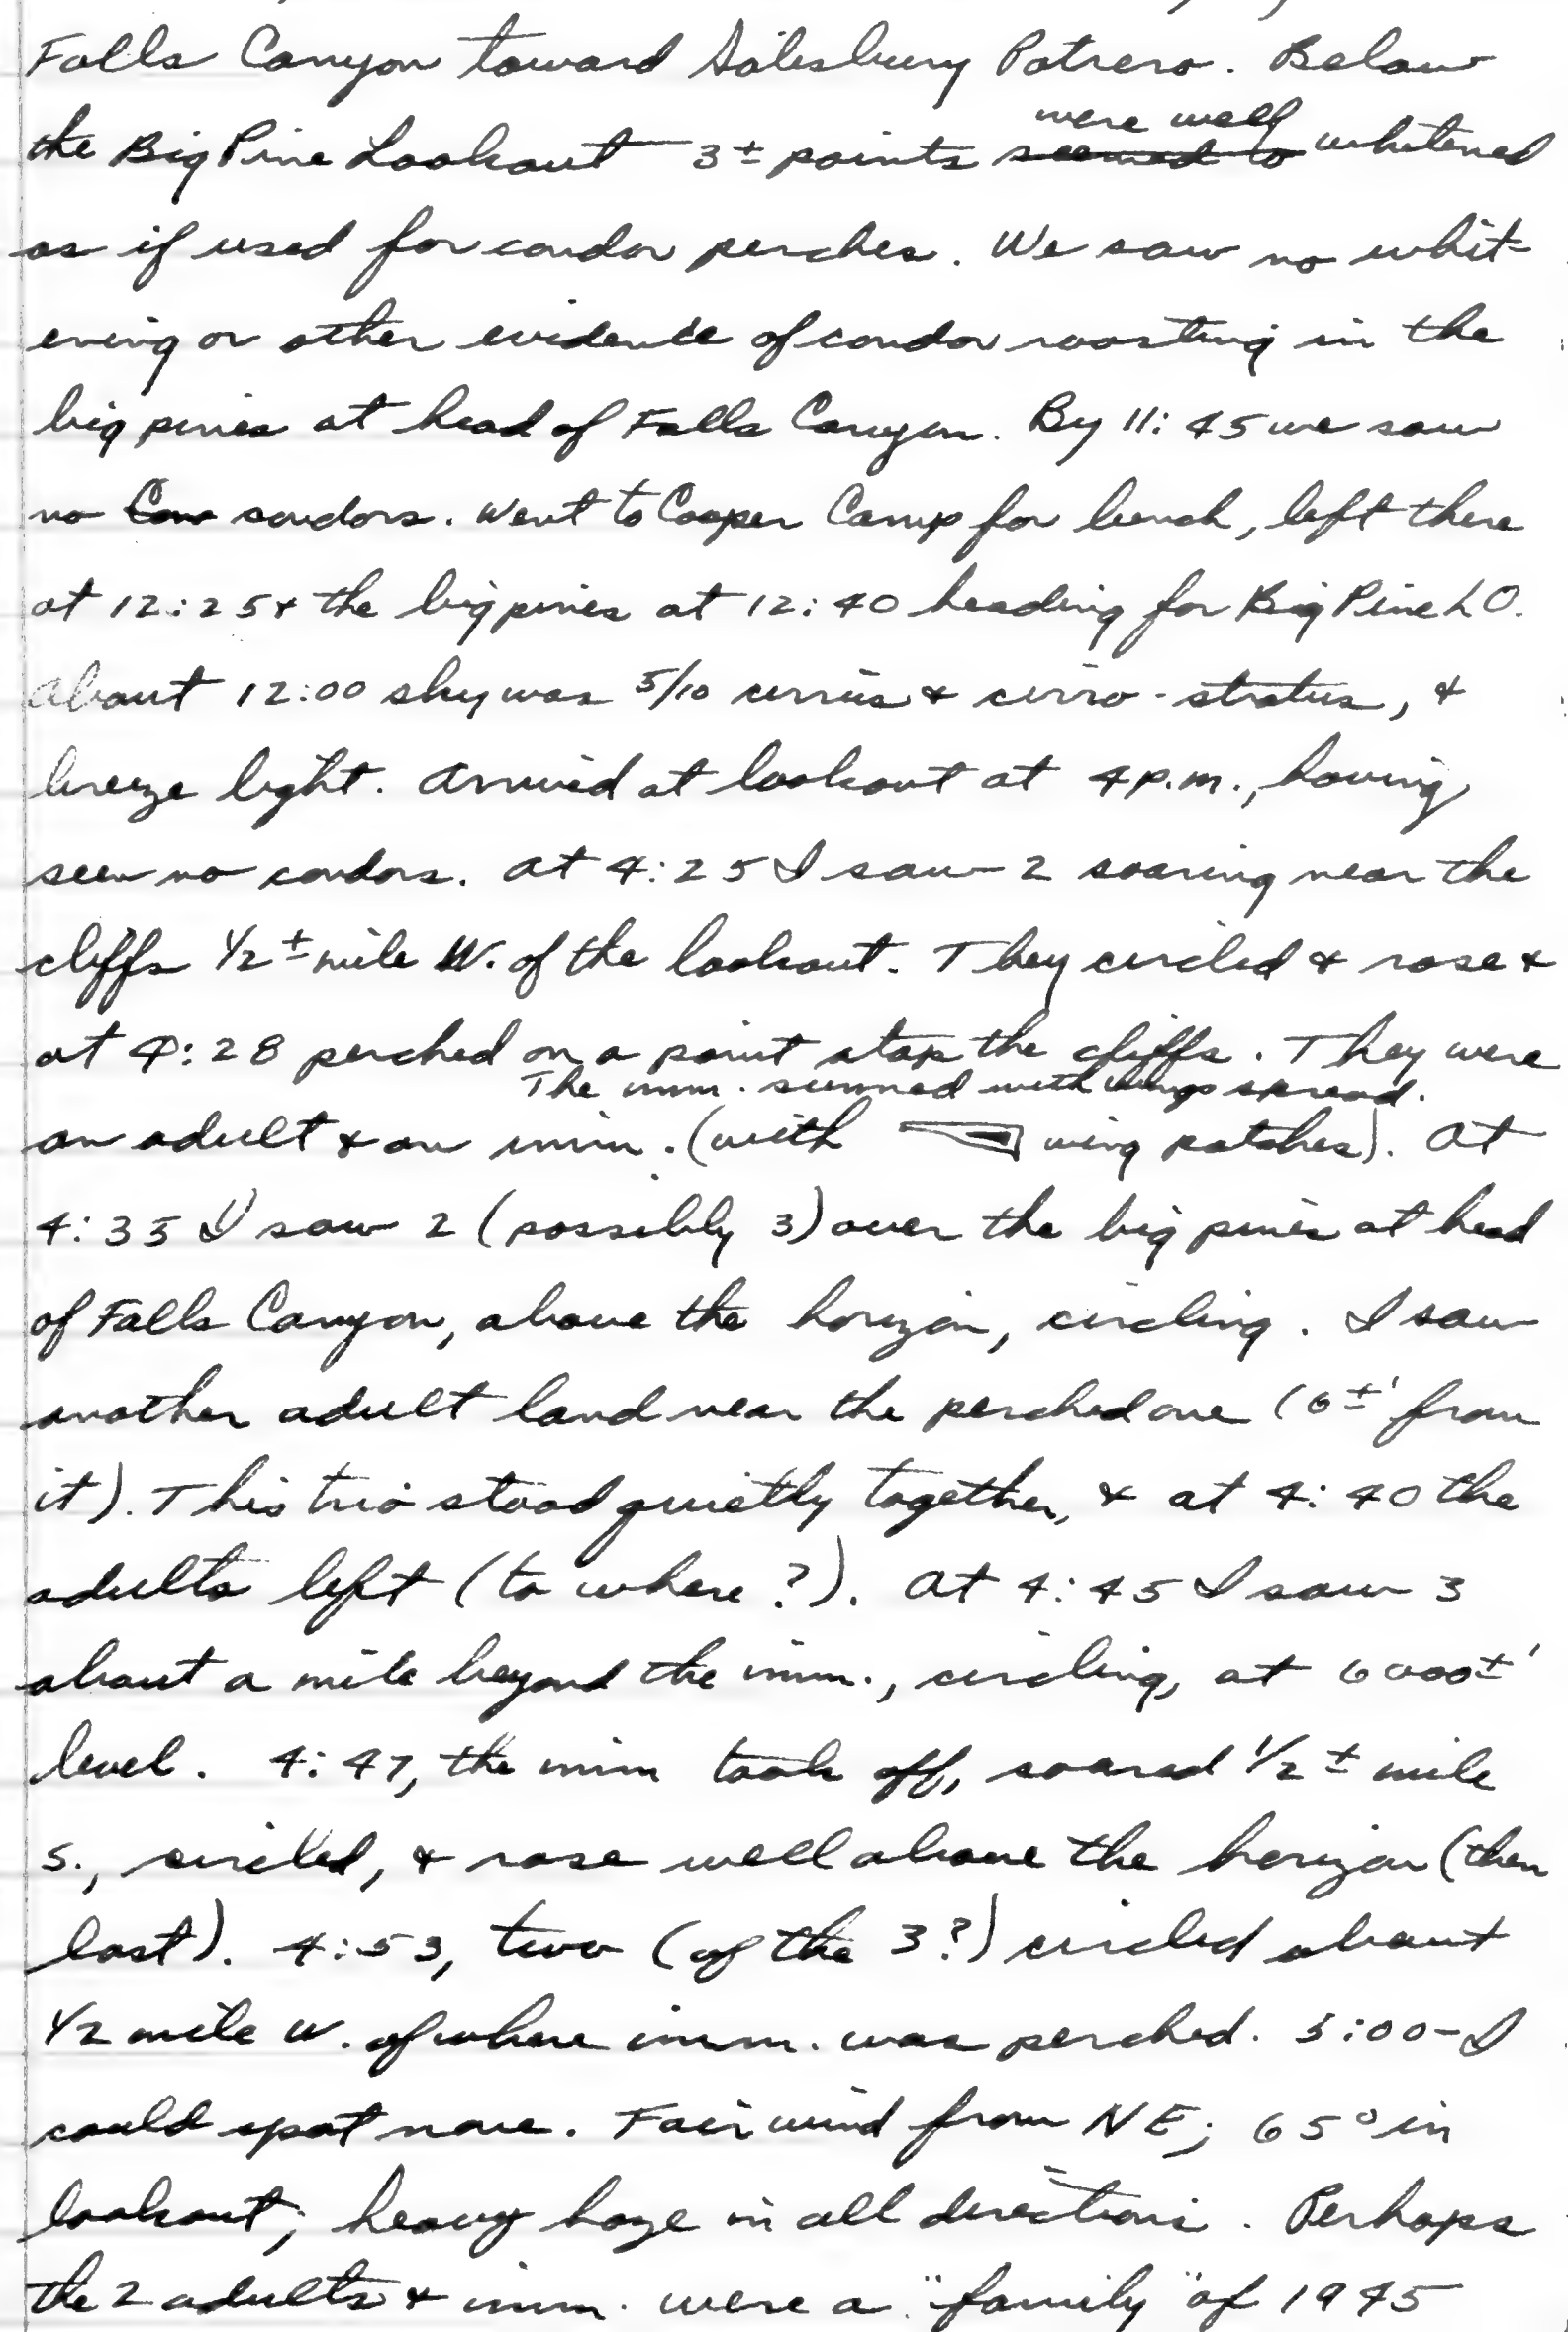 Falls Canyon toward Salesbury Potrero. Below
were well
the Big Pine Lookout 3± points seemed to whitened
as if used for condor perches. We saw no whit-
ening or other evidence of condor roosting in the
big pines at head of Falls Canyon. By 11:45 we saw
no Con condors. Went to Cooper Camp for lunch, left there
at 12:25 & the big pines at 12:40 heading for Big Pine LO.
About 12:00 sky was 5/10 cirrus & cirro-stratus, &
breeze light. Arrived at lookout at 4 p.m., having
seen no condors. At 4:25 I saw 2 soaring near the
cliffs 1/2± mile W. of the lookout. They circled & rose &
at 4:28 perched on a point atop the cliffs. They were
The imm. sunned with wings spread.
an adult & an imm. (with wing patches). At
4:35 I saw 2 (possibly 3) over the big pines at head
of Falls Canyon, above the horizon, circling. I saw
another adult land near the perched one (6±' from
it). This trio stood quietly together, & at 4:40 the
adults left (to where?). At 4:45 I saw 3
about a mile beyond the imm., circling, at 6000±'
level. 4:47, the imm took off, soared 1/2± mile
S., circled, & rose well above the horizon (then
lost). 4:53, two (of the 3?) circled about
1/2 mile W. of where imm. was perched. 5:00-I
could spot none. Fair wind from NE; 65° in
lookout; heavy haze in all directions. Perhaps
the 2 adults & imm. were a "family" of 1945